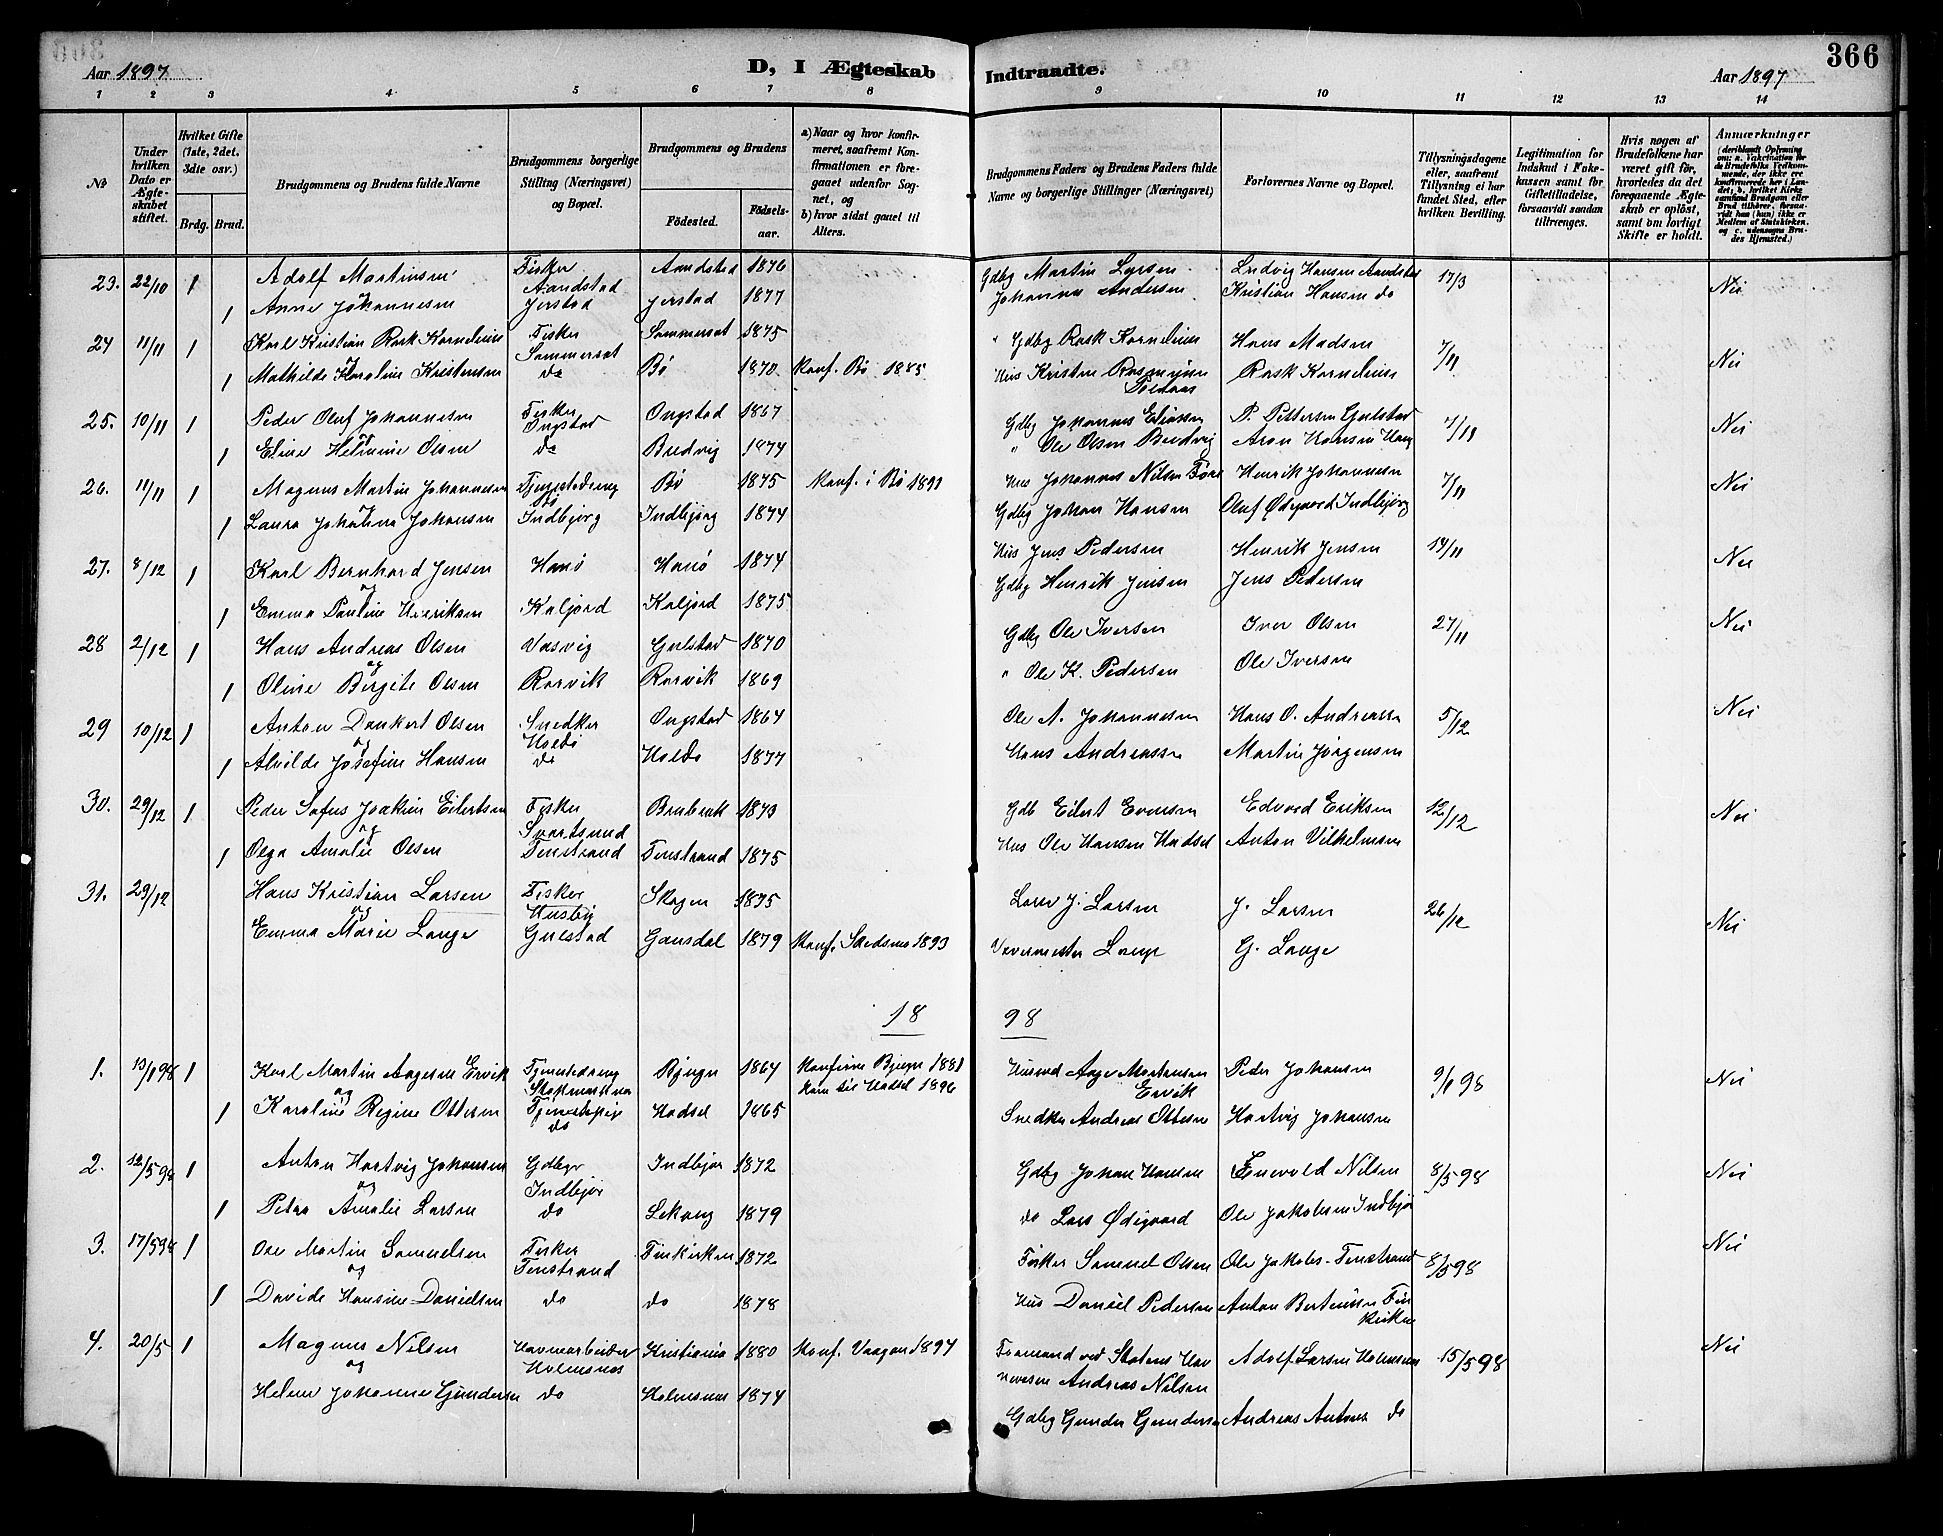 366
Aar 1897
D, I Ægteskab Indtraadte.
Aar 1897
1 2 3 4 5 6 7 8 9 10 11 12 13 14
No
Under hvilken Dato er Ægteskabet stiftet.
Hvilket Gifte (1ste, 2det, 3die osv.)
Brdg. Brud.
Brudgommens og Brudens fulde Navne
Brudgommens borgerlige Stilling (Næringsvei) og Bopæl.
Brudgommens og Brudens
Fødested. Fødselsaar.
a) Naar og hvor konfirmeret, saafremt Konfirmationen er foregaaet udenfor Sognet, og
b) hvor sidst gaaet til Alters.
Brudgommens Faders og Brudens Faders fulde Navne og borgerlige Stillinger (Næringsvei)
Forlovernes Navne og Bopæl.
Tillysningsdagene eller, saafremt Tillysning ei har fundet Sted, efter hvilken Bevilling.
Legitimation for Indskud i Fokekassen samt for Giftetilladelse, forsaavidt saadan tiltrænges.
Hvis nogen af Brudefolkene har været gift før, hvorledes da det foregaaende Ægteskab er opløst, samt om lovligt Skifte er holdt.
Anmærkninger (deriblandt Oplysning om: a. Vakcination for de Brudefolks Vedkommende, der ikke ere konfirmerede her i Landet; b. hvilket Kirkesamfund Brudgom eller Brud tilhører, forsaavidt han (hun) ikke er Medlem af Statskirken, og c. udensogns Brudes Hjemsted.)
23. 22/10 1 Adolf Martinsen Fisker Aandstad Aandstad 1876 Gdbg Martin Larsen Ludvig Hansen Aandstad 17/3 Nei
1 Anne Johannesen Jerstad Jerstad 1877 Johannes Andersen Kristian Hansen do
24 11/11 1 Karl Kristian Rask Kornelius Fisker Sommerset Sommerset 1875 " Gdbg Rask Kornelius Hans Madsen 7/11 Nei
1 Mathilde Karoline Kristensen do Bø 1870 Konf. Bø 1885 Hus Kristen Rasmussen Rask Kornelius
25. 10/11 1 Peder Oluf Johannesen Fisker Ongstad Ongstad 1867 Gdbg Johannes Eliassen P. Pettersen Gulstad 7/11 Nei
1 Eline Helmine Olsen do Bredvig 1874 " Ole Olsen Bredvig Aron Hansen Haug
26. 11/11 1 Magnus Martin Johannesen Tjenestedreng Bø Bø 1875 Konf. i Bø 1891 Hus Johannes Nilsen Føre Henrik Johannesen 7/11 Nei
1 Laura Johanna Johansen Indbjørg Indbjørg 1874 Gdbg Johan Hansen Oluf Ødegaard Indbjørg
27. 8/12 1 Karl Bernhard Jensen Hanø Hanø 1874 Hus Jens Pedersen Henrik Jensen 14/11 Nei
og
1 Emma Pauline Henriksen Kaljord Kaljord 1875 Gdbg Henrik Jensen Jens Pedersen
28 2/12 1 Hans Andreas Olsen Vasvig Gulstad 1870 Gdbg Ole Iversen Iver Olsen 27/11 Nei
og
1 Oline Birgite Olsen Rorvik Rorvik 1869 " Ole K. Pedersen Ole Iversen
29 10/12 1 Anton Dankert Olsen Snedker Holdø Ongstad 1864 Ole A. Johannesen Hans O. Andreassen 5/12 Nei
og
1 Alvilde Josefine Hansen do Holdø 1877 Hans Andreassen Martin Jørgensen
30. 29/12 1 Peder Sofus Joakim Eilertsen Fisker Svartsund 1873 Gdb Eilert Evensen Edvard Eriksen 12/12 Nei
og
1 Olga Amalie Olsen Finstrand Finstrand 1875 Hus Ole Hansen Hadsel Anton Vilhelmsen
31. 29/12 Hans Kristian Larsen Fisker Husby Skagen 1875 Lars J. Larsen J. Larsen 26/12 Nei
og
Emma Marie Lange Gulstad Gausdal 1879 Konf. Skedsmo 1893 Vevermester Lange G. Lange
1898
1. 13/1 98 1 Karl Martin Aagesen Ervik Tjenestedreng Stokmarknes Bjugn 1864 Konfirm. Bjugn 1881 kom til Hadsel 1896 Husmd Aage Mortensen Ervik Peder Johansen 9/1 98 Nei
og
1 Karoline Regine Ottesen Tjenestepige do Hadsel 1865 Snedker Andreas Ottesen Hartvig Johansen
2. 12/5 98 1 Anton Hartvig Johansen Gdbgr Indbjør Indbjør 1872 Gdbg Johan Hansen Enevold Nilsen 8/5 98 Nei
og
1 Petra Amalie Larsen do Lekang 1879 do Lars Ødegaard Ole Jakobsen Indbjør
3. 17/5 98 1 Ole Martin Samuelsen Fisker Finstrand Finkirken 1872 Fisker Samuel Olsen Ole Jakobs. Finstrand 8/5 98 Nei
og
1 Davide Hansine Danielsen do do 1878 Hus Daniel Pedersen Anton Berteussen Finkirken
4. 20/5 1 Magnus Nilsen Havnearbeider Holmsnes Kristiania 1880 Konf. Vaagan 1897 Formand ved Statens Havnevæsen Andreas Nilsen Adolf Larsen Holmsnes 15/5 98 Nei
og
Helene Johanne Gundersen do Holmsnes 1874 Gdbg Gunder Gundersen Andreas Antons do